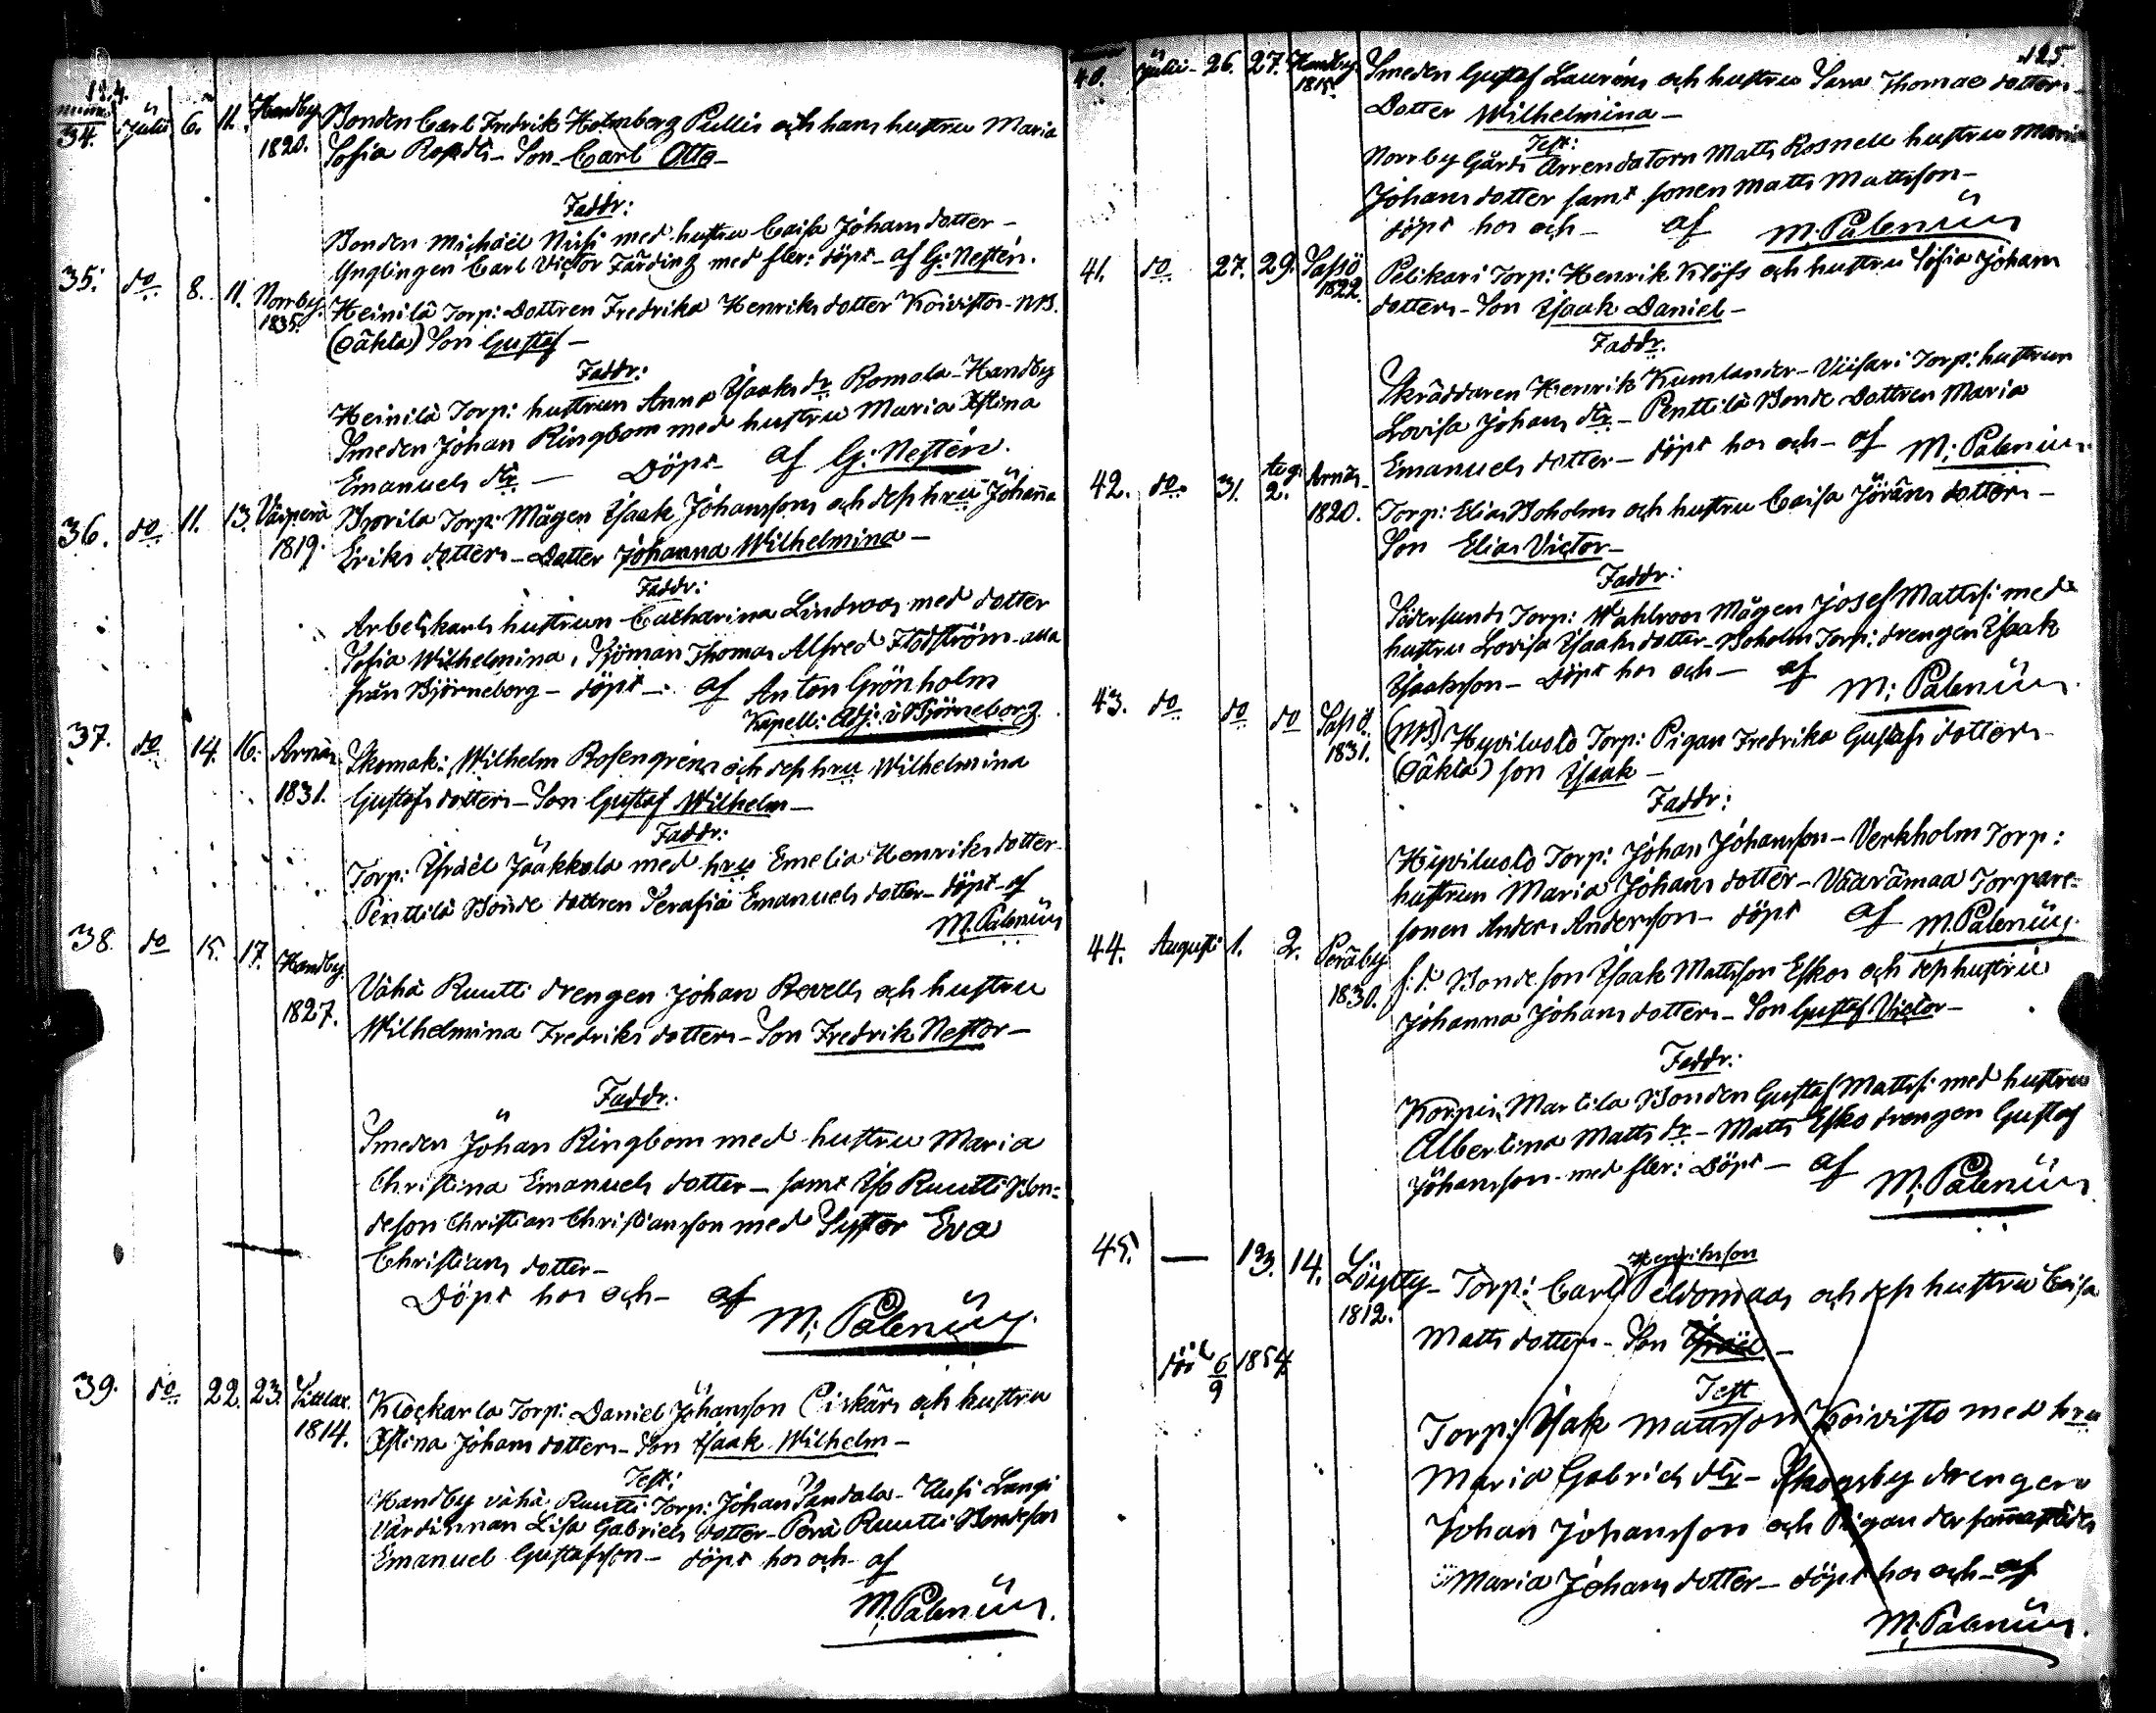 124.
num.
34. Julii 6. 11. Handby 1820. Bonden Carl Fredrik Holmberg Pullis och hans hustru Maria
Sofia Rosdtr - Son Carl Otto -
Faddr:
Bonden Michaël Nisi med hustru Caisa Johans dotter -
Ynglingen Carl Victor Färding med fler: döpt - af G: Nestén.
35. do 8. 11. Norrby 1835. Heinilä Torp: Dottren Fredrika Henriks dotter Koivistos - NB.
(oäkta) Son Gustaf -
Faddr:
Heinilä Torp: hustrun Anna Isaaks dr Romola - Handby
Smeden Johan Ringbom med hustru Maria Xstina
Emanuels dtr - Döpt - af G: Nestén.
36. do 11. 13. 1819. Torp: Mågen Isaak Johanssons och dess hru Johanna
Eriks dotters - Dotter Johanna Wilhelmina -
Faddr:
Arbetskarls hustrun Catharina Lindroos med dotter
Sofia Wilhelmina, Sjöman Thomas Alfred Flodström alla
från Björneborg - döpt - af Anton Grönholm
Kapell: Adj: i Björneborg.
37. do 14. 16. Arnäs 1831. Skomak: Wilhelm Rosengréns och dess hru Wilhelmina
Gustafs dotters - Son Gustaf Wilhelm -
Faddr:
Torp: Israël Jaakkola med hru Emelia Henriks dotter -
Penttilä Bonde dottren Serafia Emanuels dotter - döpt - af
M. Palenius
38. do 15. 17. Handby. 1827. Vähä Ruutti drengen Johan Revells och hustru
Wilhelmina Fredriks dotters - Son Fredrik Nestor -
Faddr:
Smeden Johan Ringbom med hustru Maria
Christina Emanuels dotter - samt Iso Ruutti Bon=
deson Christian Christiansson med Syster Eva
Christians dotter -
Döpt hos och - af
M: Palenius.
39. do 22. 23. Sittlax. 1814. Klockarla Torp: Daniel Johansson och hustru
Xstina Johans dotters - Son Isaak Wilhelm -
Test:
Handby vähä Ruutti Torp: Johan Sandala - Uusi Langi
Värdinnan Lisa Gabriels dotter - Perä Ruutti Bondeson
Emanuel Gustafsson - döpt hos och - af
M. Palenius.
125
40. Julii - 26. 27. Handby 1815. Smeden Gustaf Lauréns och hustru Sara Thomae dotters -
Dotter Wilhelmina -
Test:
Norrby Gårds Arrendatorn Matts Rosnell hustru Maria
Johans dotter samt sonen Matts Mattsson -
döpt hos och - af M. Palenius
41. do 27. 29. Sassö 1822. Pitkari Torp: Henrik Klöfs och hustru Sofia Johans
dotters - Son Isaak Daniel -
Faddr:
Skräddaren Henrik Kumlander - Viisari Torp: hustrun
Lovisa Johans dtr - Penttilä Bonde Dottren Maria
Emanuels dotter - döpt hos och - af M: Palenius.
42. do 31. Aug: 2. Arnäs - 1820. Torp: Elias Boholms och hustru Caisa Jörans dotters -
Son Elias Victor -
Faddr:
Södersunds Torp: Wahlroos Mågen Josef Mattss: med
hustru Lovisa Isaaks dotter - Boholm Torp: drengen Isaak
Isaaksson - Döpt hos och - af M: Palenius.
43. do do do Sassö. 1831. (NB) Hyviluoto Torp: Pigan Fredrika Gustafs dotters -
(oäkta) son Isaak -
Faddr:
Hyviluoto Torp: Johan Johansson - Verkholm Torp:
hustrun Maria Johans dotter - Väärämaa Torpare=
sonen Anders Andersson - döpt af M. Palenius.
44. Augusti 1. 2. Peräby 1830. f: d: Bonde son Isaak Mattsson Eskos och dess hustru
Johanna Johans dotters - Son Gustaf Victor -
Faddr:
Korpis Martila Bonden Gustaf Mattss: med hustru
Albertina Matts dr - Matts Esko drengen Gustaf
Johansson med fler: Döpt - af M: Palenius.
45. — 13. 14. Löytty - 1812. Torp: Carl Henriksson Peldomaas och dess hustru Caisa
Matts dotters - Son Israël -
död 6/9 1854
Test
Torp: Isak Mattsson Koivisto med hru
Maria Gabriels dtr - Skogsby drengen
Johan Johansson och Pigan der sammastädes
Maria Johans dotter - döpt hos och - af
M. Palenius.